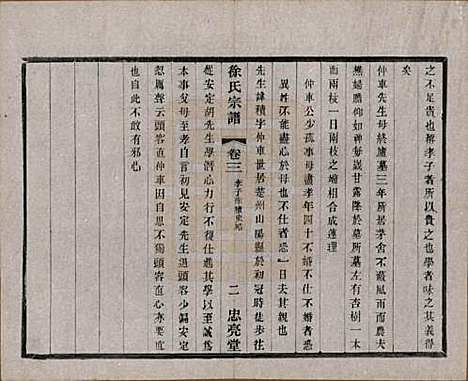 之不足貴也俾孝子者所以貴之也學者味之其義得
矣
仲車先生母終廬墓三年所居茅舍不蔽風雨而農夫
撫婦瞻仰如神每歲甘露降於墓所墓左有杏樹一本
而兩枝一日兩枝之𣎴相合成蓮理
仲車公少孤事母盡孝年四十不婚不仕不婚者恐
異姓不能盡心於母也不仕者恐一日去其親也
先生諱積字仲車世居楚州山陽縣於初冠時徒步往
徐氏宗譜
卷三
二
忠亮堂
從安定胡先生學潛心力行不復仕進其學以至誠爲
本事父母至孝自言初見安定先生退頭容少偏安定
忽厲聲云頭容直仲車因思不獨頭容直心亦要直
也自此不敢有邪心